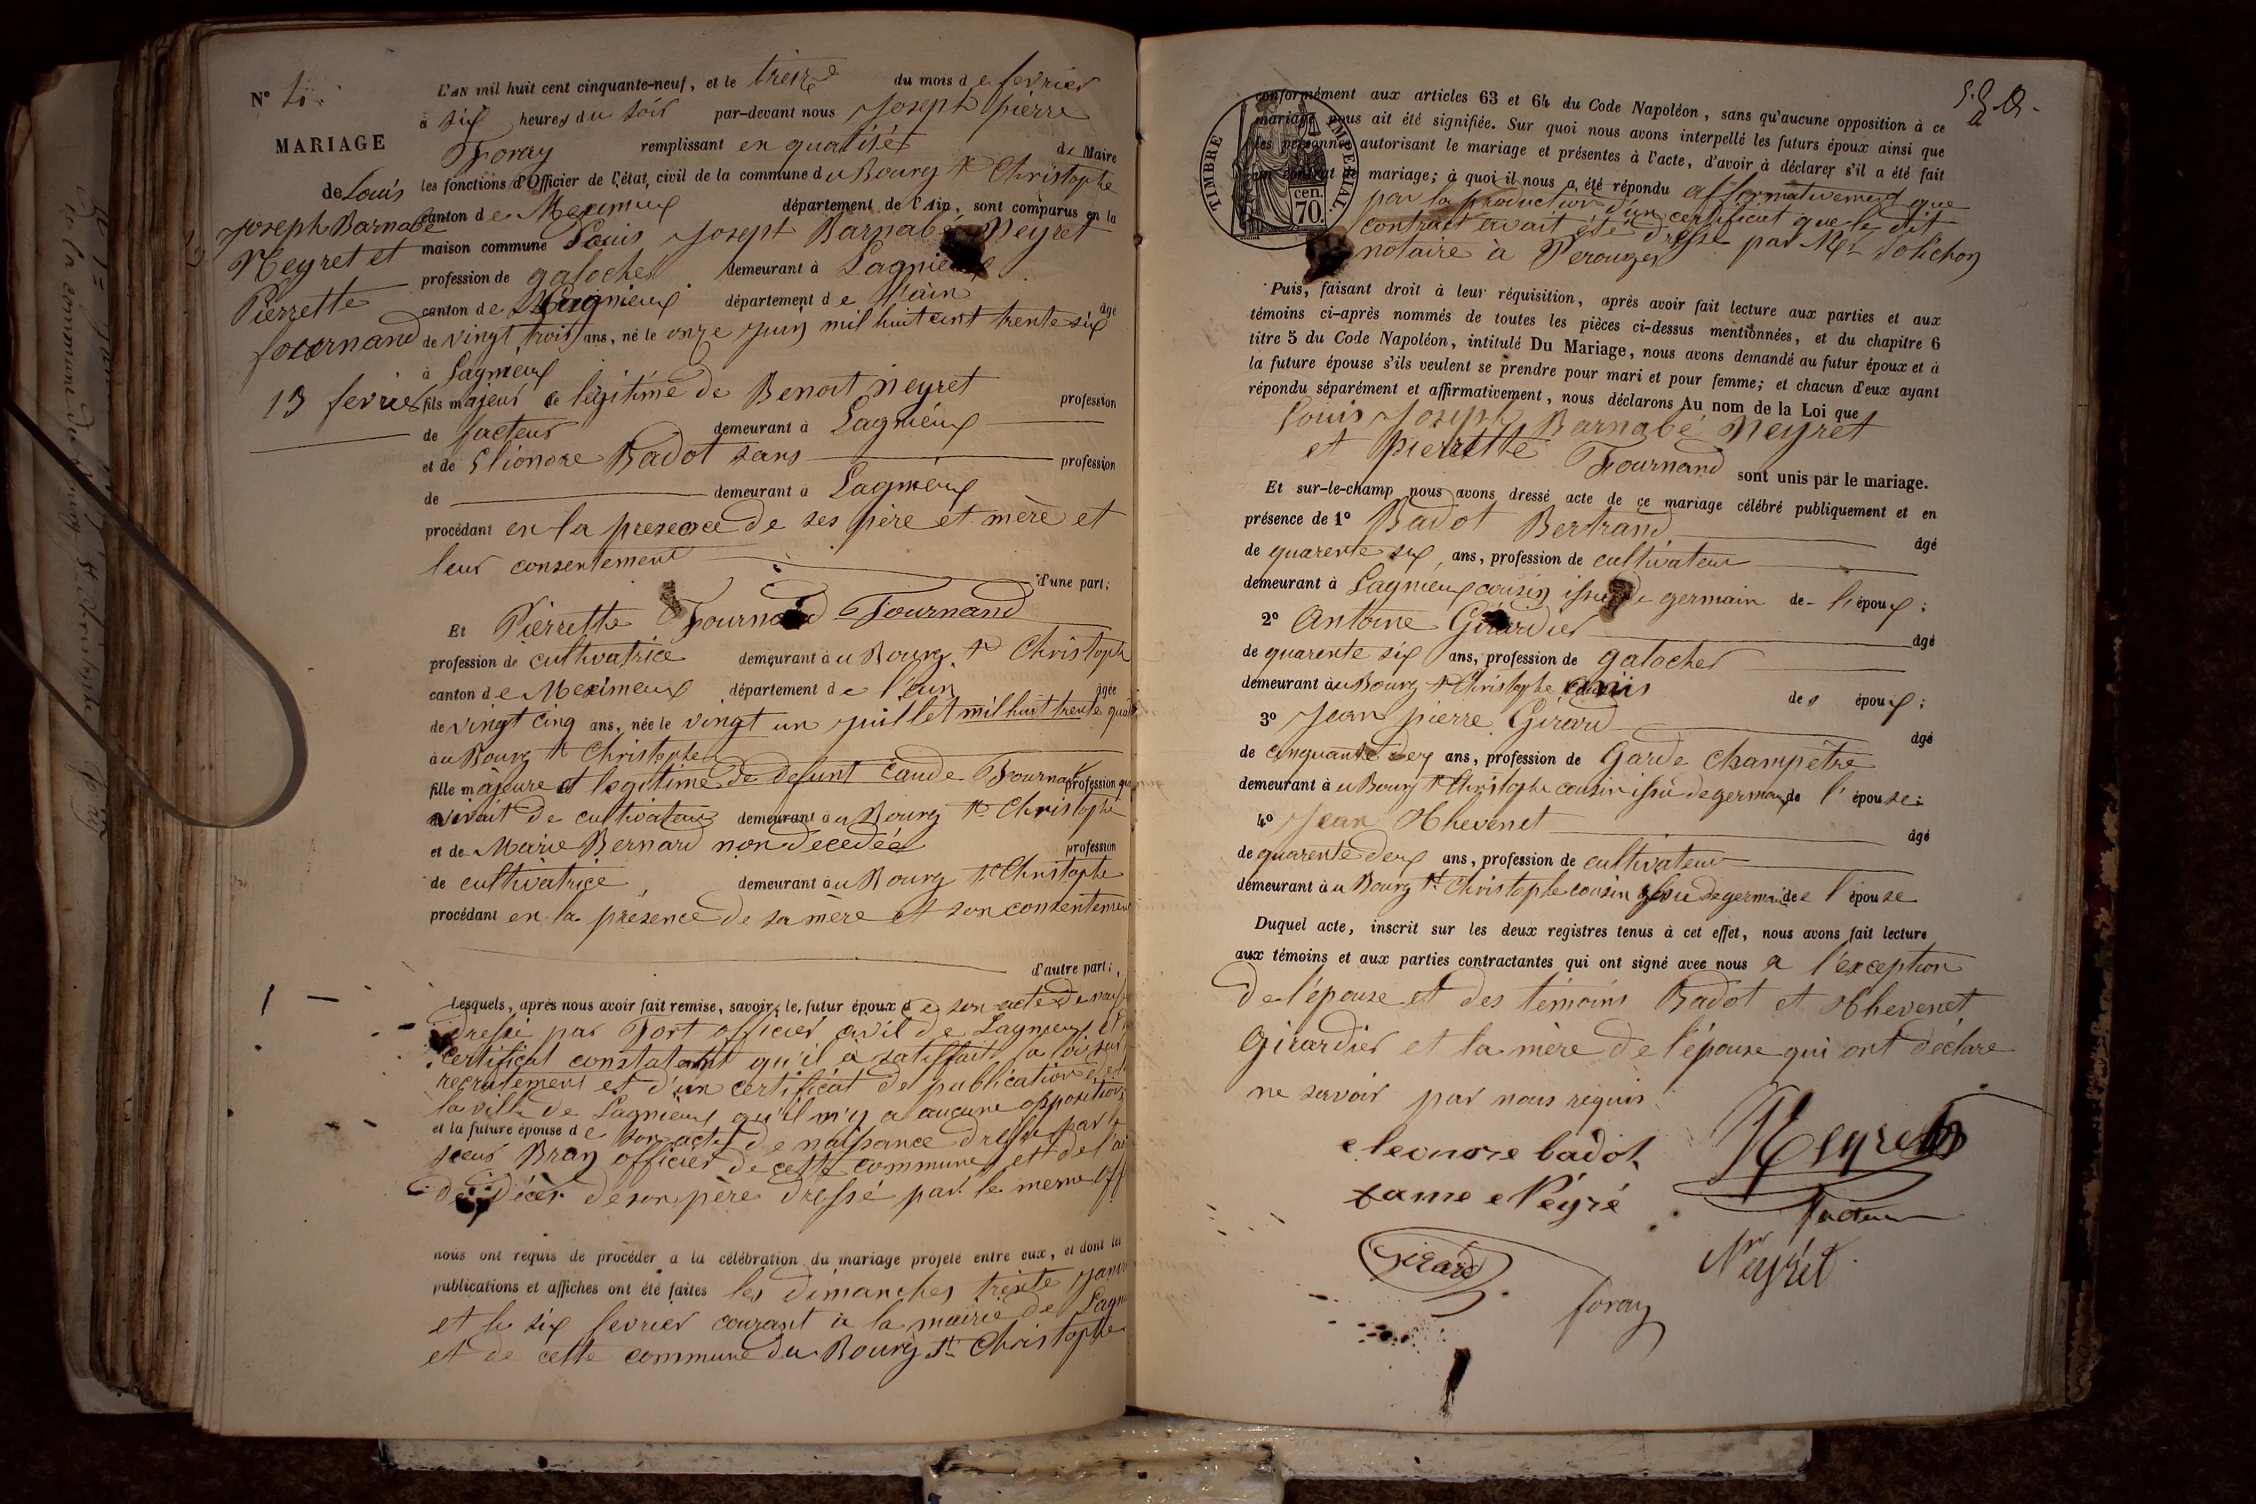 N°
MARIAGE
de Louis
Joseph Barnabé
Neyret et
Pierrette
fournand
13 fevrier
L'AN mil huit cent cinquante-neuf, et le treize du mois de fevrier
à six heures du soir par-devant nous Joseph pierre
Foray remplissant en qualité de Maire
les fonctions d'Officier de l'état civil de la commune du Bourg St Christophe
canton de Meximieux département de l'Ain, sont comparus en la
maison commune Louis Joseph Barnabé Neyret
profession de galocher demeurant à Lagnieux
canton de Lagnieux département de l'ain âgé
de vingt trois ans, né le onze juin mil huit cent trente six
à Lagnieux
fils majeur et légitime de Benoit Neyret profession
de facteur demeurant à Lagnieux
et de Eliónore Badot sans profession
de demeurant à Lagnieux
procédant en la presence de ses père et mère et
leur consentement
d'une part;
Et Pierrette Fournand Fournand
profession de cultivatrice demeurant à u Bourg St Christophe
canton de Meximieux département de l'ain âgée
de vingt cinq ans, née le vingt un juillet mil huit trente quatre
à u Bourg St Christophe
fille majeure et legitime de defunt Caude Fournand profession qui
vivait de cultivateur demeurant à u Bourg St Christophe
et de Marie Bernard non decedée profession
de cultivatrice, demeurant à u Bourg St Christophe
procédant en la présence de sa mère et son consentement
d'autre part;
Lesquels, après nous avoir fait remise, savoir, le futur époux de son acte de
dressé par Tort officier civil de Lagnieux et
certificat constatant qu'il a satisfait a la loi sur
recrutement et d'un certificat de publication de
la ville de Lagnieux qu'il n'y a aucune opposition
et la future épouse de son acte de naissance dressé par
sieur Bray officier de cette commune, et de l'acte
de décès de son père dressé par le meme off
nous ont requis de procéder à la célébration du mariage projeté entre eux, et dont les
publications et affiches ont été faites les dimanches trente janv
et le six fevrier courant à la mairie de Lagn
et de cette commune du Bourg St Christophe
TIMBRE IMPÉRIAL
cen.
70.
conformément aux articles 63 et 64 du Code Napoléon, sans qu'aucune opposition à ce
mariage nous ait été signifiée. Sur quoi nous avons interpellé les futurs époux ainsi que
les personnes autorisant le mariage et présentes à l'acte, d'avoir à déclarer s'il a été fait
un contrat de mariage; à quoi il nous a été répondu affirmativement que
par la production d'un certificat que le dit
contract avait été dressé par Me Solichon
notaire à Perouges
Puis, faisant droit à leur réquisition, après avoir fait lecture aux parties et aux
témoins ci-après nommés de toutes les pièces ci-dessus mentionnées, et du chapitre 6
titre 5 du Code Napoléon, intitulé Du Mariage, nous avons demandé au futur époux et à
la future épouse s'ils veulent se prendre pour mari et pour femme; et chacun d'eux ayant
répondu séparément et affirmativement, nous déclarons Au nom de la Loi que
Louis Joseph Barnabé Neyret
et Pierrette Fournand sont unis par le mariage.
Et sur-le-champ nous avons dressé acte de ce mariage célébré publiquement et en
présence de 1° Badot Bertrand âgé
de quarente six ans, profession de cultivateur
demeurant à Lagnieux cousin issu de germain de l'époux;
2° Antoine Girardier âgé
de quarente six ans, profession de galocher
demeurant à u Bourg St Christophe amis des époux;
3° Jean pierre Girard âgé
de cinquante deux ans, profession de Garde Champêtre
demeurant à u Bourg St Christophe cousin issu de germain de l'épouse;
4° Jean Thevenet âgé
de quarente deux ans, profession de cultivateur
demeurant à u Bourg St Christophe cousin issu de germain de l'épouse
Duquel acte, inscrit sur les deux registres tenus à cet effet, nous avons fait lecture
aux témoins et aux parties contractantes qui ont signé avec nous a l'exception
de l'épouse et des témoins Badot et Thevenet
Girardier et la mère de l'épouse qui ont déclare
ne savoir par nous requis.
eleonore badot Neyret
fame Néyré facteur
Girard Neyret
foray